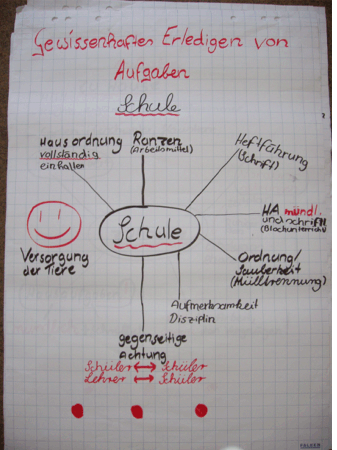 Gewissenhaftes Erledigen von
Aufgaben
Schule
Hausordnung
vollständig
einhalten
Ranzen
(Arbeitsmittel)
Heftführung
(Schrift)
HA mündl.
und schriftl.
(Blockunterricht)
Ordnung/
Sauberkeit
(Mülltrennung)
Schule
Versorgung
der Tiere
Aufmerksamkeit
Disziplin
gegenseitige
Achtung
Schüler ↔ Schüler
Lehrer ↔ Schüler